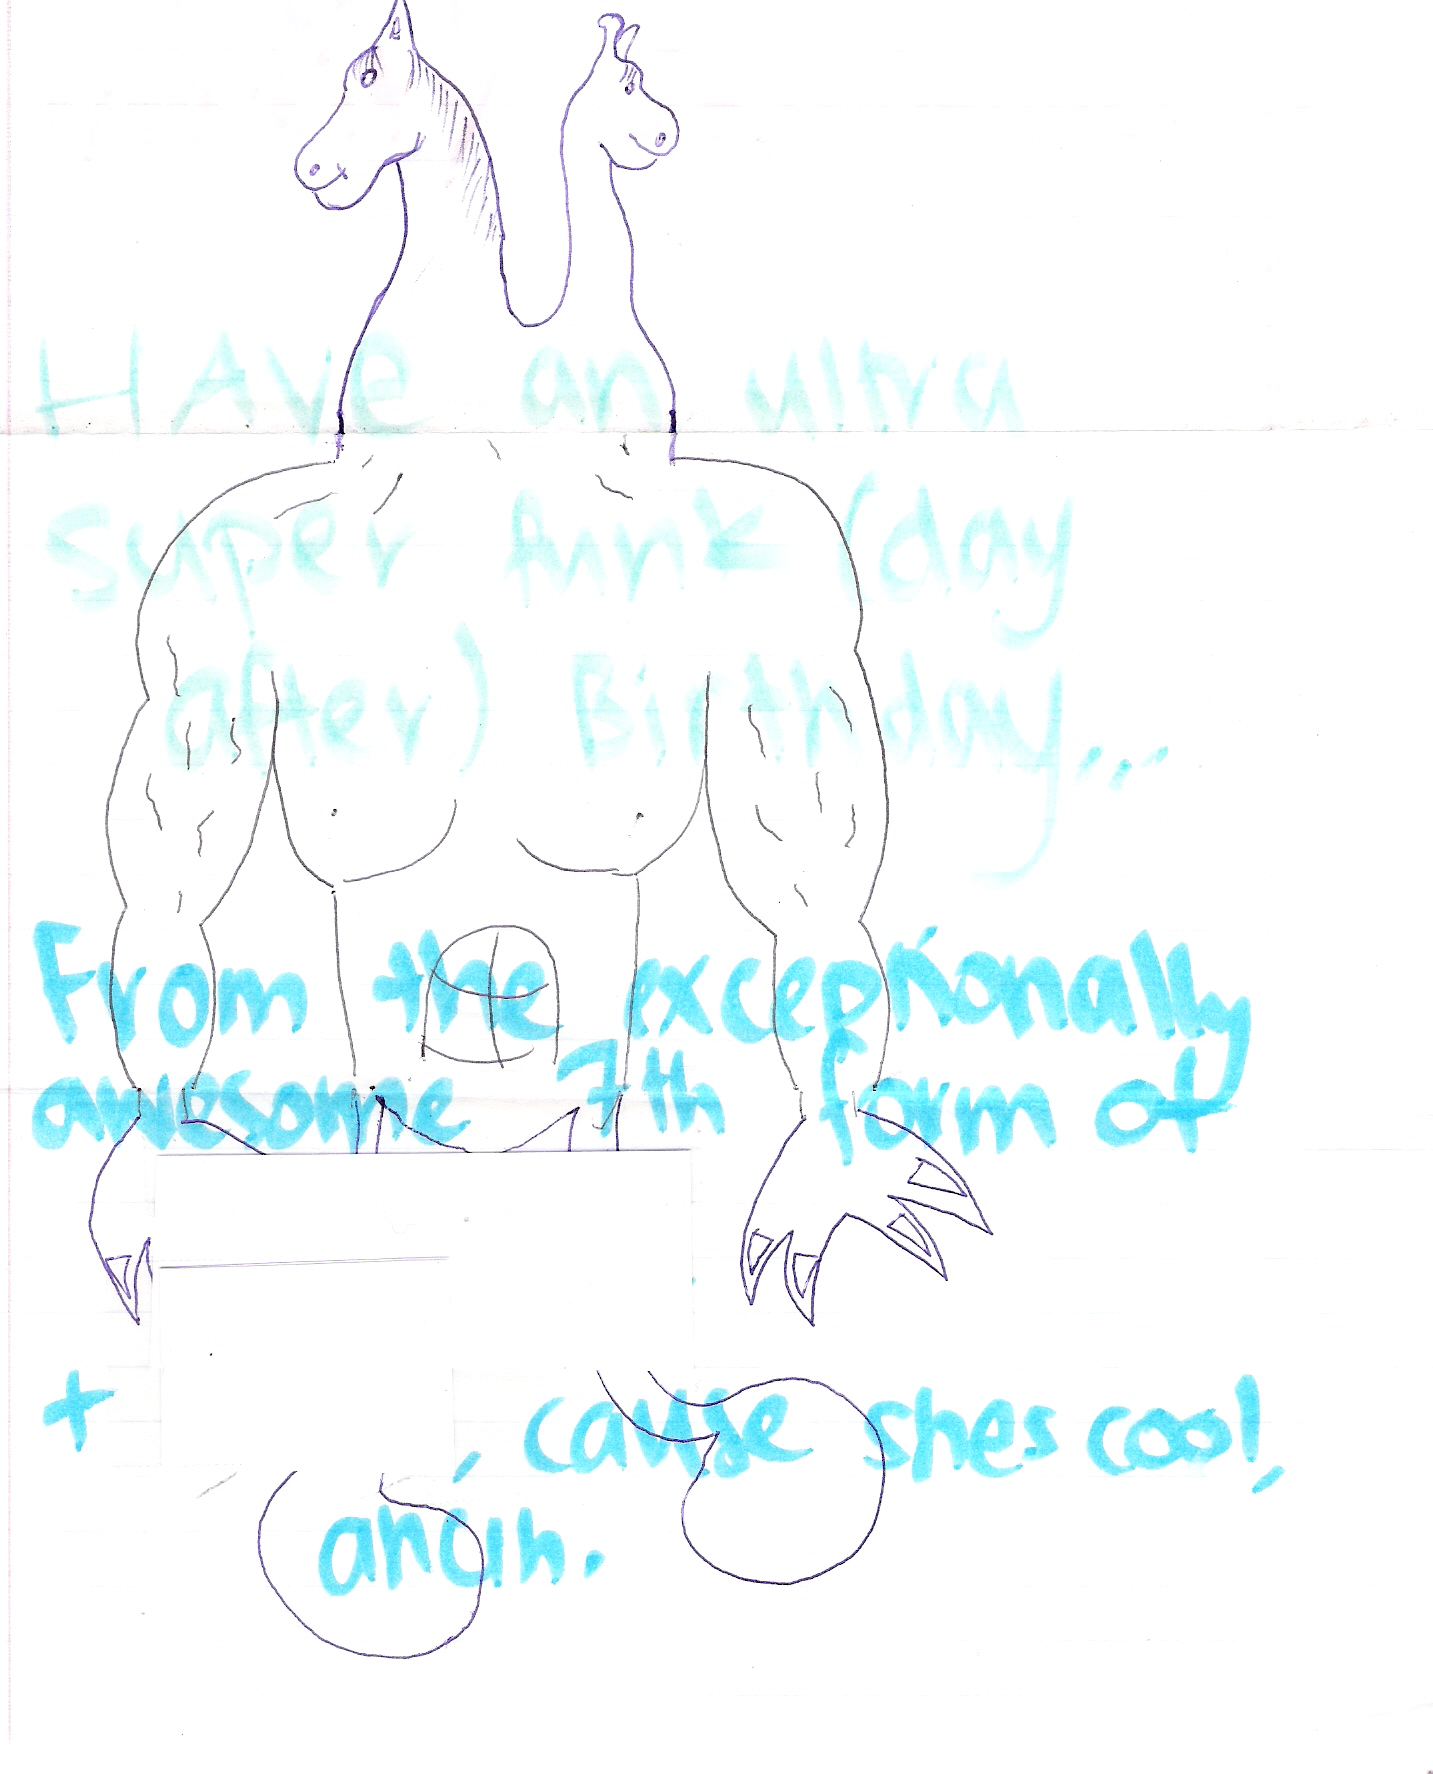 HAve an ultra
super funk (day
after) Birthday...
From the exceptionally
awesome 7th form of
+ , cause shes cool,